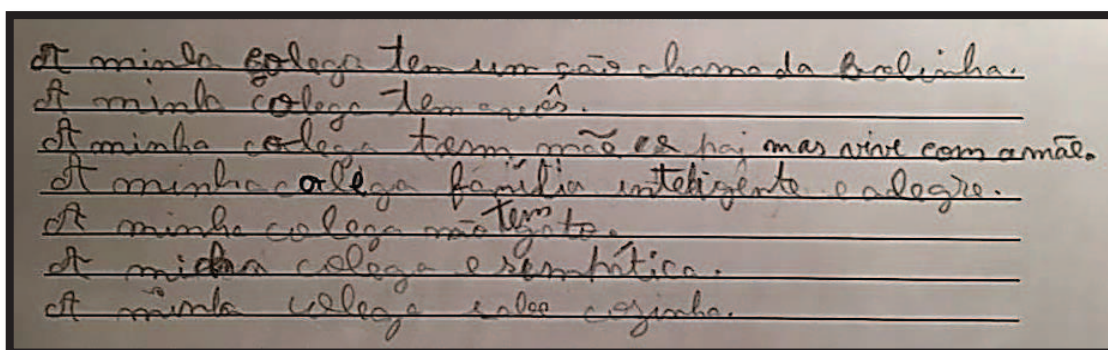 A minha colega tem um cão chamada Bolinha.
A minha colega tem avós.
A minha colega tem mãe e pai mas vive com a mãe.
A minha colega família inteligente e alegre.
A minha colega não tem gato.
A minha colega e simpática.
A minha colega sabe cozinha.